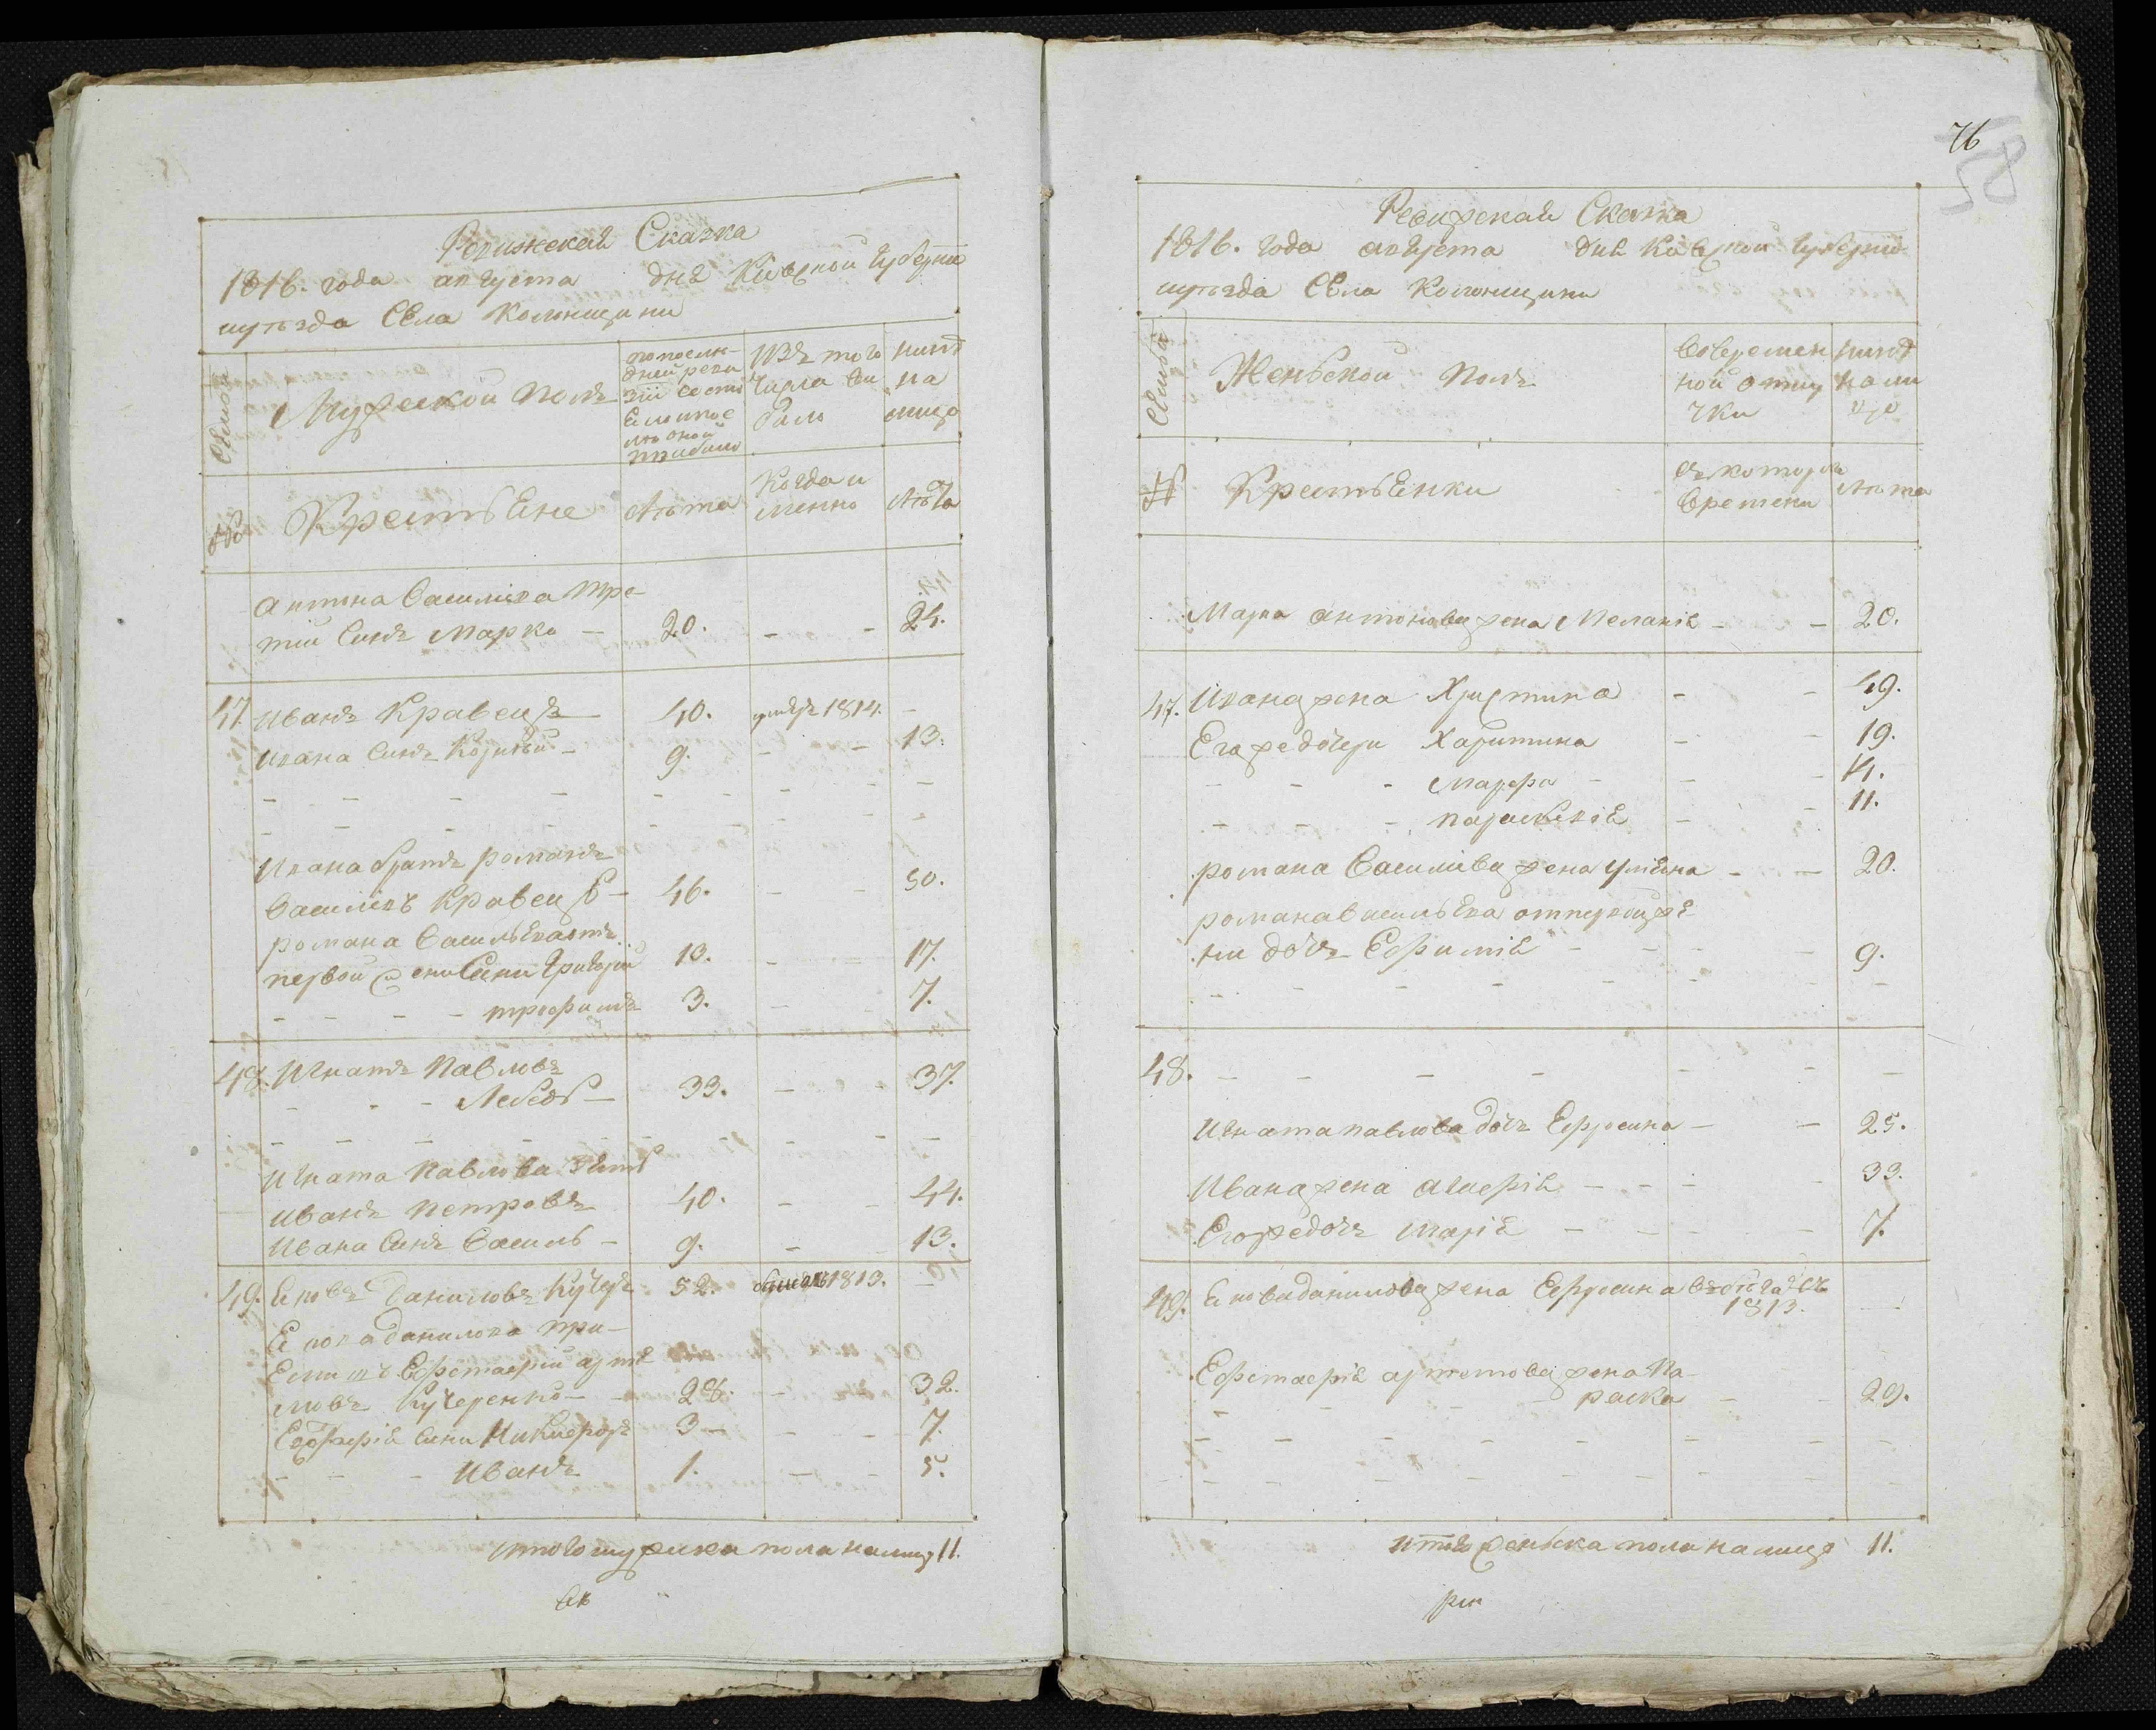 Ревижская Сказка
1816. года августа дня Киевской Губернии
уезда Села Колонщини
Семьи
Мужеской полъ
по последней ревизии состояло и после оной прибыло
Изъ того числа выбыло
нынѣ на лицо
№
Крестьяне
лѣта
Когда именно
лѣта
Антона Василіева тре-
тій Синъ Марко — 20. - - 24.
47. Иванъ Кравецъ 40. умеръ 1814. -
Ивана Синъ Корнѣй - 9. - - 13.
Ивана братъ романъ
Василіевъ Кравецъ - 46. - - 50.
романа Васильева отъ
первой жени Сини Григорій 13. - - 17.
- - - - трофимъ 3. - - 7.
48. Игнатъ Павловъ
- - - Лебедь - 33. - 37.
Игната Павлова зять
Иванъ Петровъ 40. - - 44.
Ивана Синъ Василь - 9. - 13.
49. Яковъ Даниловъ Кучеръ 52. 1813. -
Якова данилова при-
Емишъ Ефстафій артемовъ Кучеренко - 28. - 32.
Ефстафія Сини Никифоръ 3 - - - 7.
- - - Иванъ 1. - - 5.
Итого мужеска пола налицо 11.
76
58
Ревижская Сказка
1816. года августа дня Киевской Губерніи
уезда Села Колонщини
Семьи
Женьской полъ
Во временной отлучки
нынѣ на лицо
№
Крестьянки
съ котораго времени
лѣта
Марка антонова жена Меланія - - 20.
47. Ивана жена Христина - - 49.
Его же дочери Харитина - - 19.
- - - Марфа - - - 14.
- - - параскевія - - 11.
романа Василіева жена Уліяна - - 20.
романа Васильева отъ первой же-
ни дочь Ефимія - - - - 9.
48. - - - - - - -
Игната павлова дочь Ефросина - - 25.
Ивана жена агафія - - - 33.
Его же дочь Марія - - - 7.
49. Якова данилова жена Ефросина въ бегахъ съ
1813. -
Ефстафія артемова жена Па-
- - - - раска - - 29.
Итого женьска пола налицо 11.